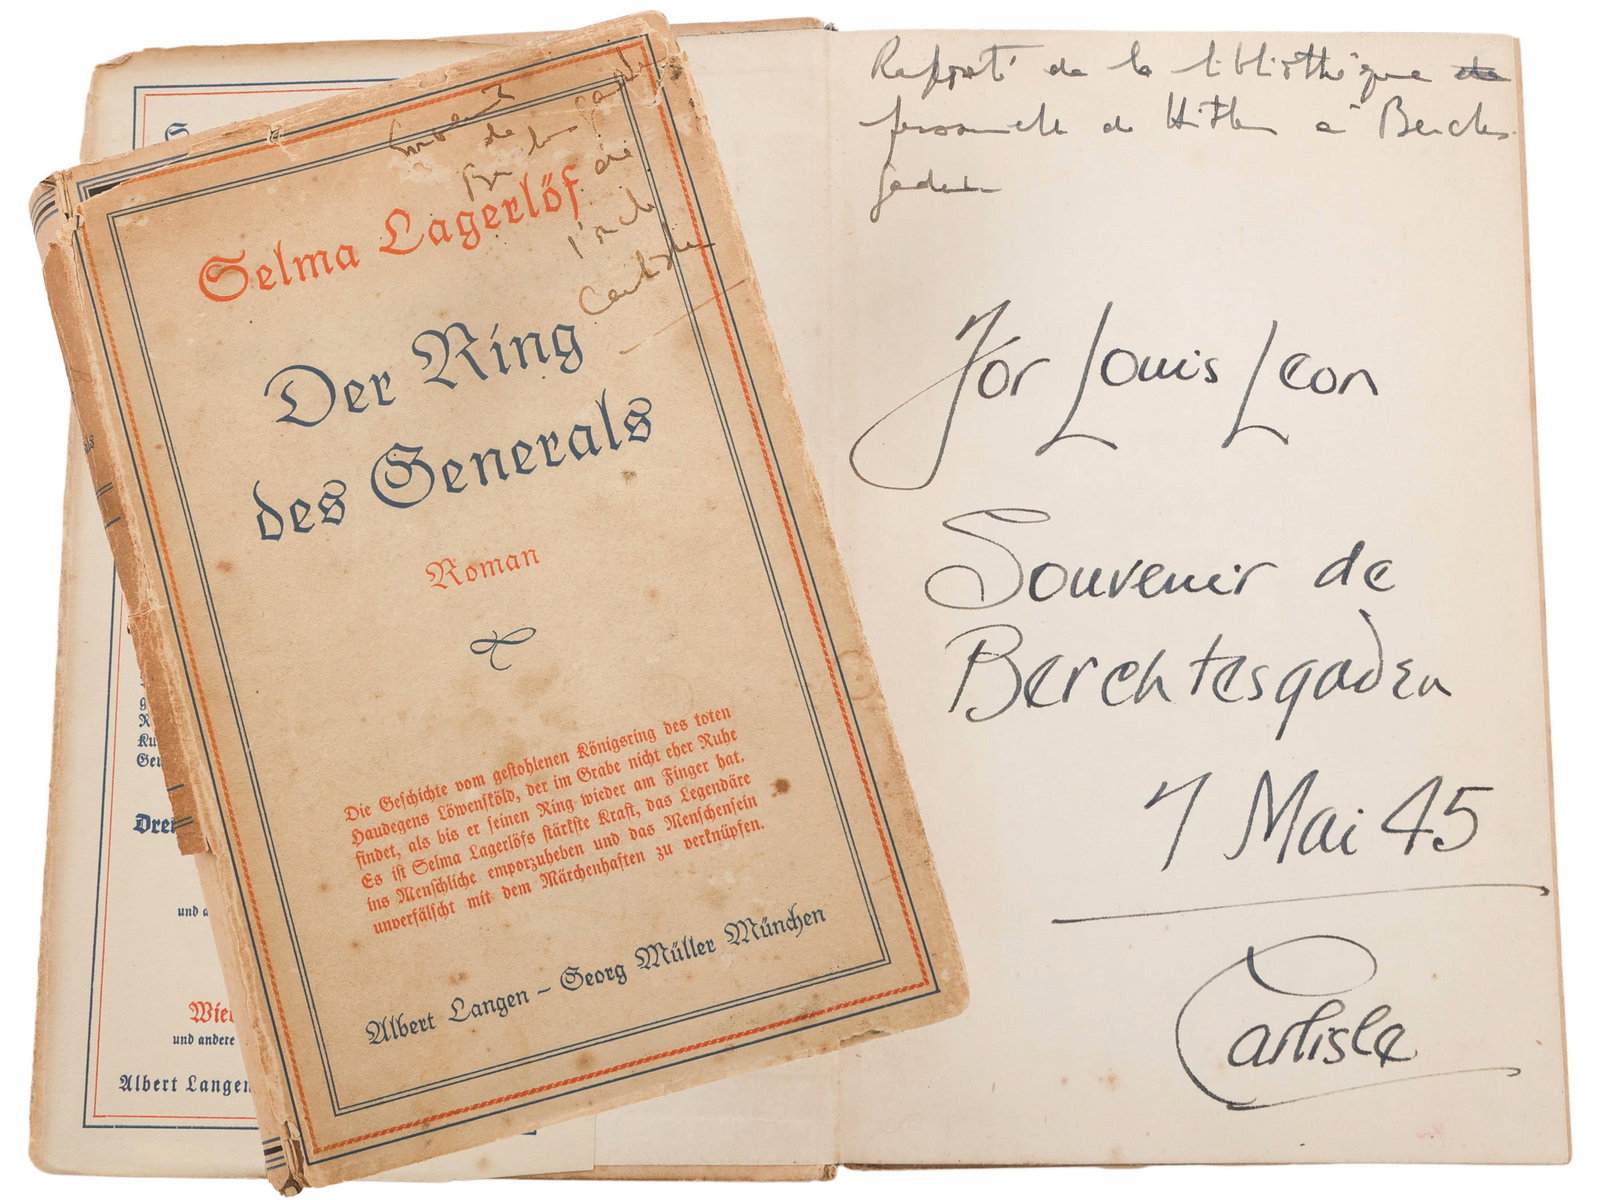 Selma Lagerlöf
Der Ring
des Generals
Roman
Die Geschichte vom gestohlenen Königsring des toten
Haudegens Löwensköld, der im Grabe nicht eher Ruhe
findet, als bis er seinen Ring wieder am Finger hat.
Es ist Selma Lagerlöfs stärkste Kraft, das Legendäre
ins Menschliche emporzuheben und das Menschensein
unverfälscht mit dem Märchenhaften zu verknüpfen.
Albert Langen – Georg Müller München
Drei
und
Wie
und andere
Albert Langen
Rapporté de la bibliothèque de
personnelle de Hitler à Berchtes
gaden
För Louis Leon
Souvenir de
Berchtesgaden
7 Mai 45
Carlisle